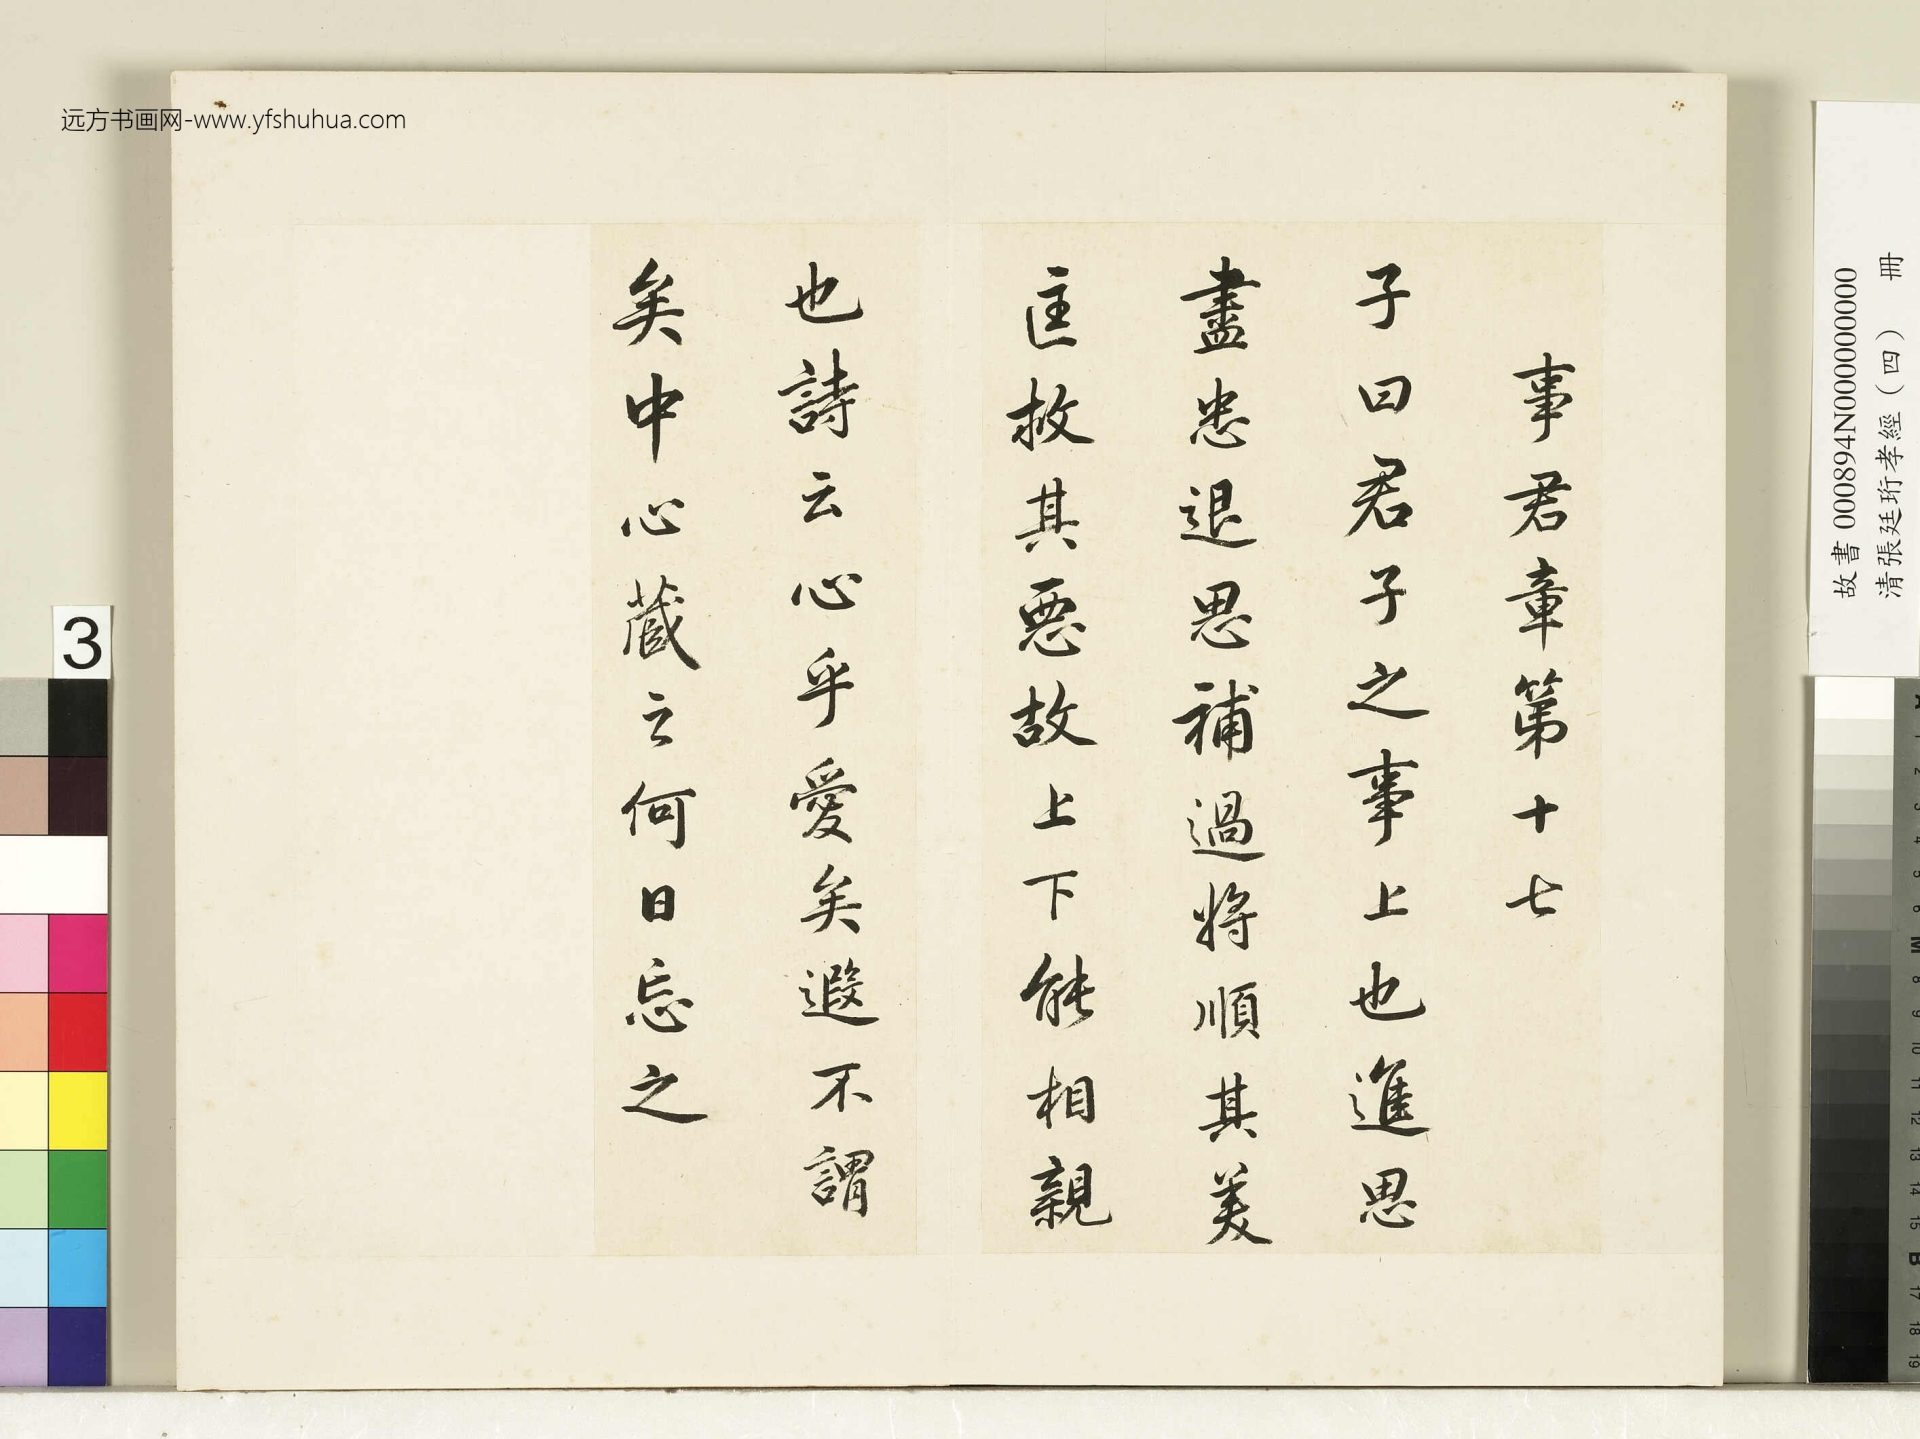 事君章第十七
子曰君子之事上也進思
盡忠退思補過將順其美
匡救其惡故上下能相親
也詩云心乎愛矣遐不謂
矣中心藏之何日忘之
远方书画网-www.yfshuhua.com
故書 000894N000000000
清張廷珩孝經（四） 冊
3